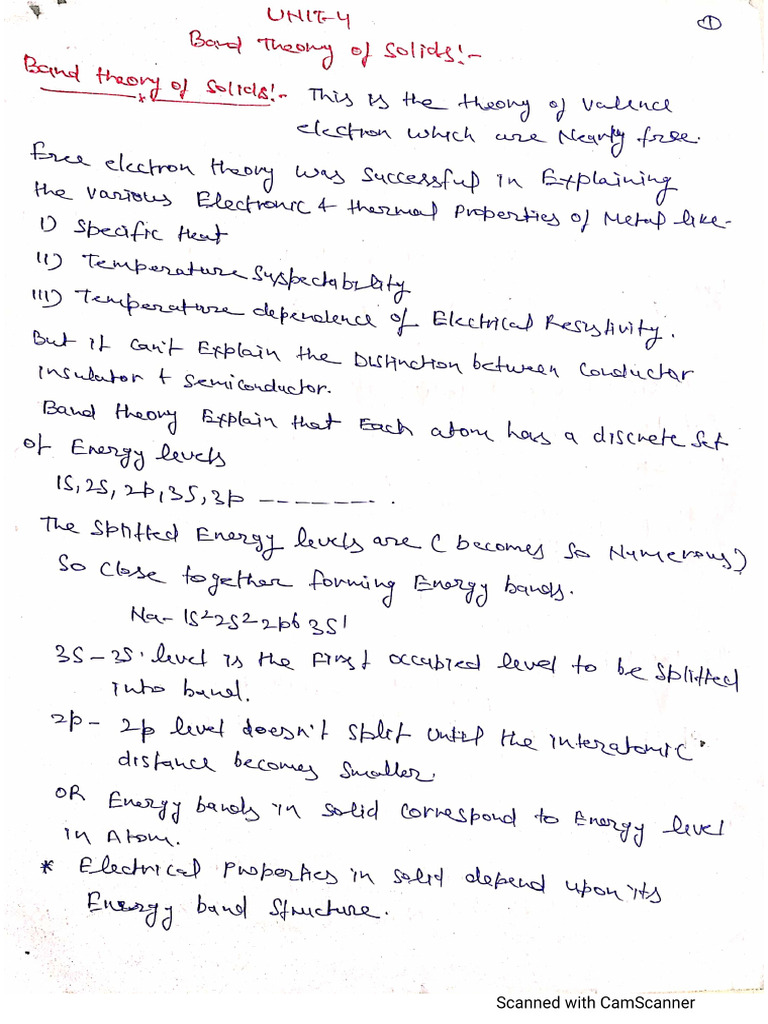 UNIT-4
①
Band Theory of Solids:-
Band theory of Solids:- This is the theory of Valence
electron which are Nearly free.
Free electron theory was successful in Explaining
the various Electronic & thermal Properties of Metal like-
I) Specific Heat
II) Temperature Suspectability
III) Temperature dependence of Electrical Resistivity.
But it can't Explain the Distinction between Conductor
insulator & semiconductor.
Band theory Explain that Each atom has a discrete set
of Energy levels
1S, 2S, 2p, 3S, 3p -------.
The Splitted Energy levels are (becomes so Numerous)
So close together forming Energy bands.
Na- 1S² 2S² 2p⁶ 3S¹
3S - 3S level is the First occupied level to be splitted
into band.
2p - 2p level doesn't split until the interatomic
distance becomes smaller.
OR Energy bands in solid correspond to Energy level
in Atom.
* Electrical Properties in solid depend upon its
Energy band structure.
Scanned with CamScanner